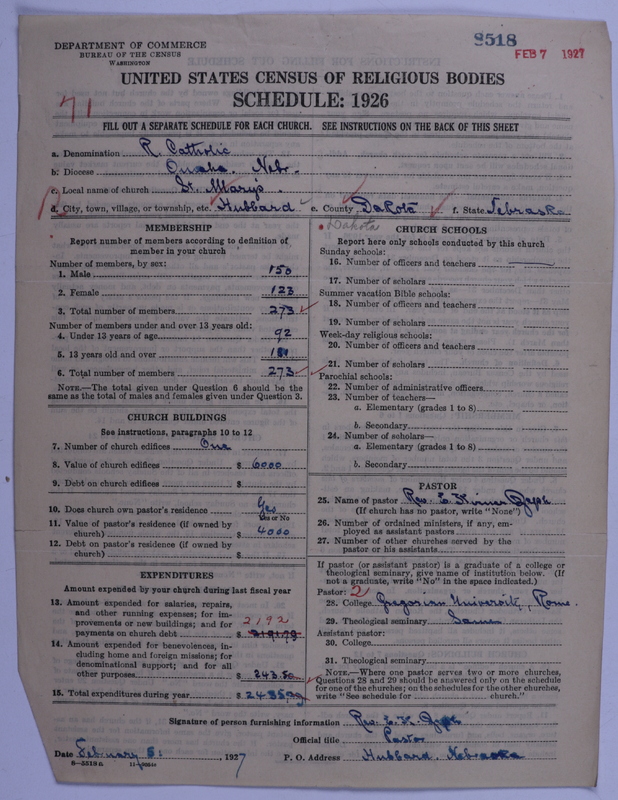 8518
FEB 7 1927
DEPARTMENT OF COMMERCE
BUREAU OF THE CENSUS
WASHINGTON
UNITED STATES CENSUS OF RELIGIOUS BODIES
SCHEDULE: 1926
71
FILL OUT A SEPARATE SCHEDULE FOR EACH CHURCH. SEE INSTRUCTIONS ON THE BACK OF THIS SHEET
a. Denomination R. Catholic
b. Diocese Omaha. Nebr.
c. Local name of church St. Mary's.
d. City, town, village, or township, etc. Hubbard e. County Dakota f. State Nebraska
Dakota
MEMBERSHIP
Report number of members according to definition of
member in your church
Number of members, by sex:
1. Male 150
2. Female 123
3. Total number of members 273
Number of members under and over 13 years old:
4. Under 13 years of age 92
5. 13 years old and over 181
6. Total number of members 273
NOTE.—The total given under Question 6 should be
same as the total of males and females given under Question 3.
CHURCH BUILDINGS
See instructions, paragraphs 10 to 12
7. Number of church edifices One
8. Value of church edifices $ 6000
9. Debt on church edifices $
10. Does church own pastor's residence Yes
Yes or No
11. Value of pastor's residence (if owned by
church) $ 4000
12. Debt on pastor's residence (if owned by
church) $
EXPENDITURES
Amount expended by your church during last fiscal year
13. Amount expended for salaries, repairs,
and other running expenses; for im-
provements or new buildings; and for 2192
payments on church debt $ 2191.79
14. Amount expended for benevolences, in-
cluding home and foreign missions; for
denominational support; and for all
other purposes $ 243.50
15. Total expenditures during year $ 2435
CHURCH SCHOOLS
Report here only schools conducted by this church
Sunday schools:
16. Number of officers and teachers
17. Number of scholars
Summer vacation Bible schools:
18. Number of officers and teachers
19. Number of scholars
Week-day religious schools:
20. Number of officers and teachers
21. Number of scholars
Parochial schools:
22. Number of administrative officers
23. Number of teachers—
a. Elementary (grades 1 to 8)
b. Secondary
24. Number of scholars—
a. Elementary (grades 1 to 8)
b. Secondary
PASTOR
25. Name of pastor Rev. E.
(If church has no pastor, write "None")
26. Number of ordained ministers, if any, em-
ployed as assistant pastors
27. Number of other churches served by the
pastor or his assistants
If pastor (or assistant pastor) is a graduate of a college or
theological seminary, give name of institution below. (If
not a graduate, write "No" in the space indicated.)
Pastor: 2
28. College Gregorian University, Rome.
29. Theological seminary Same
Assistant pastor:
30. College
31. Theological seminary
NOTE.—Where one pastor serves two or more churches,
Questions 28 and 29 should be answered only on the schedule
for one of the churches; on the schedules for the other churches,
write "See schedule for church."
Signature of person furnishing information Rev. E.
Official title Pastor
Date February 5: , 1927 P. O. Address Hubbard, Nebraska